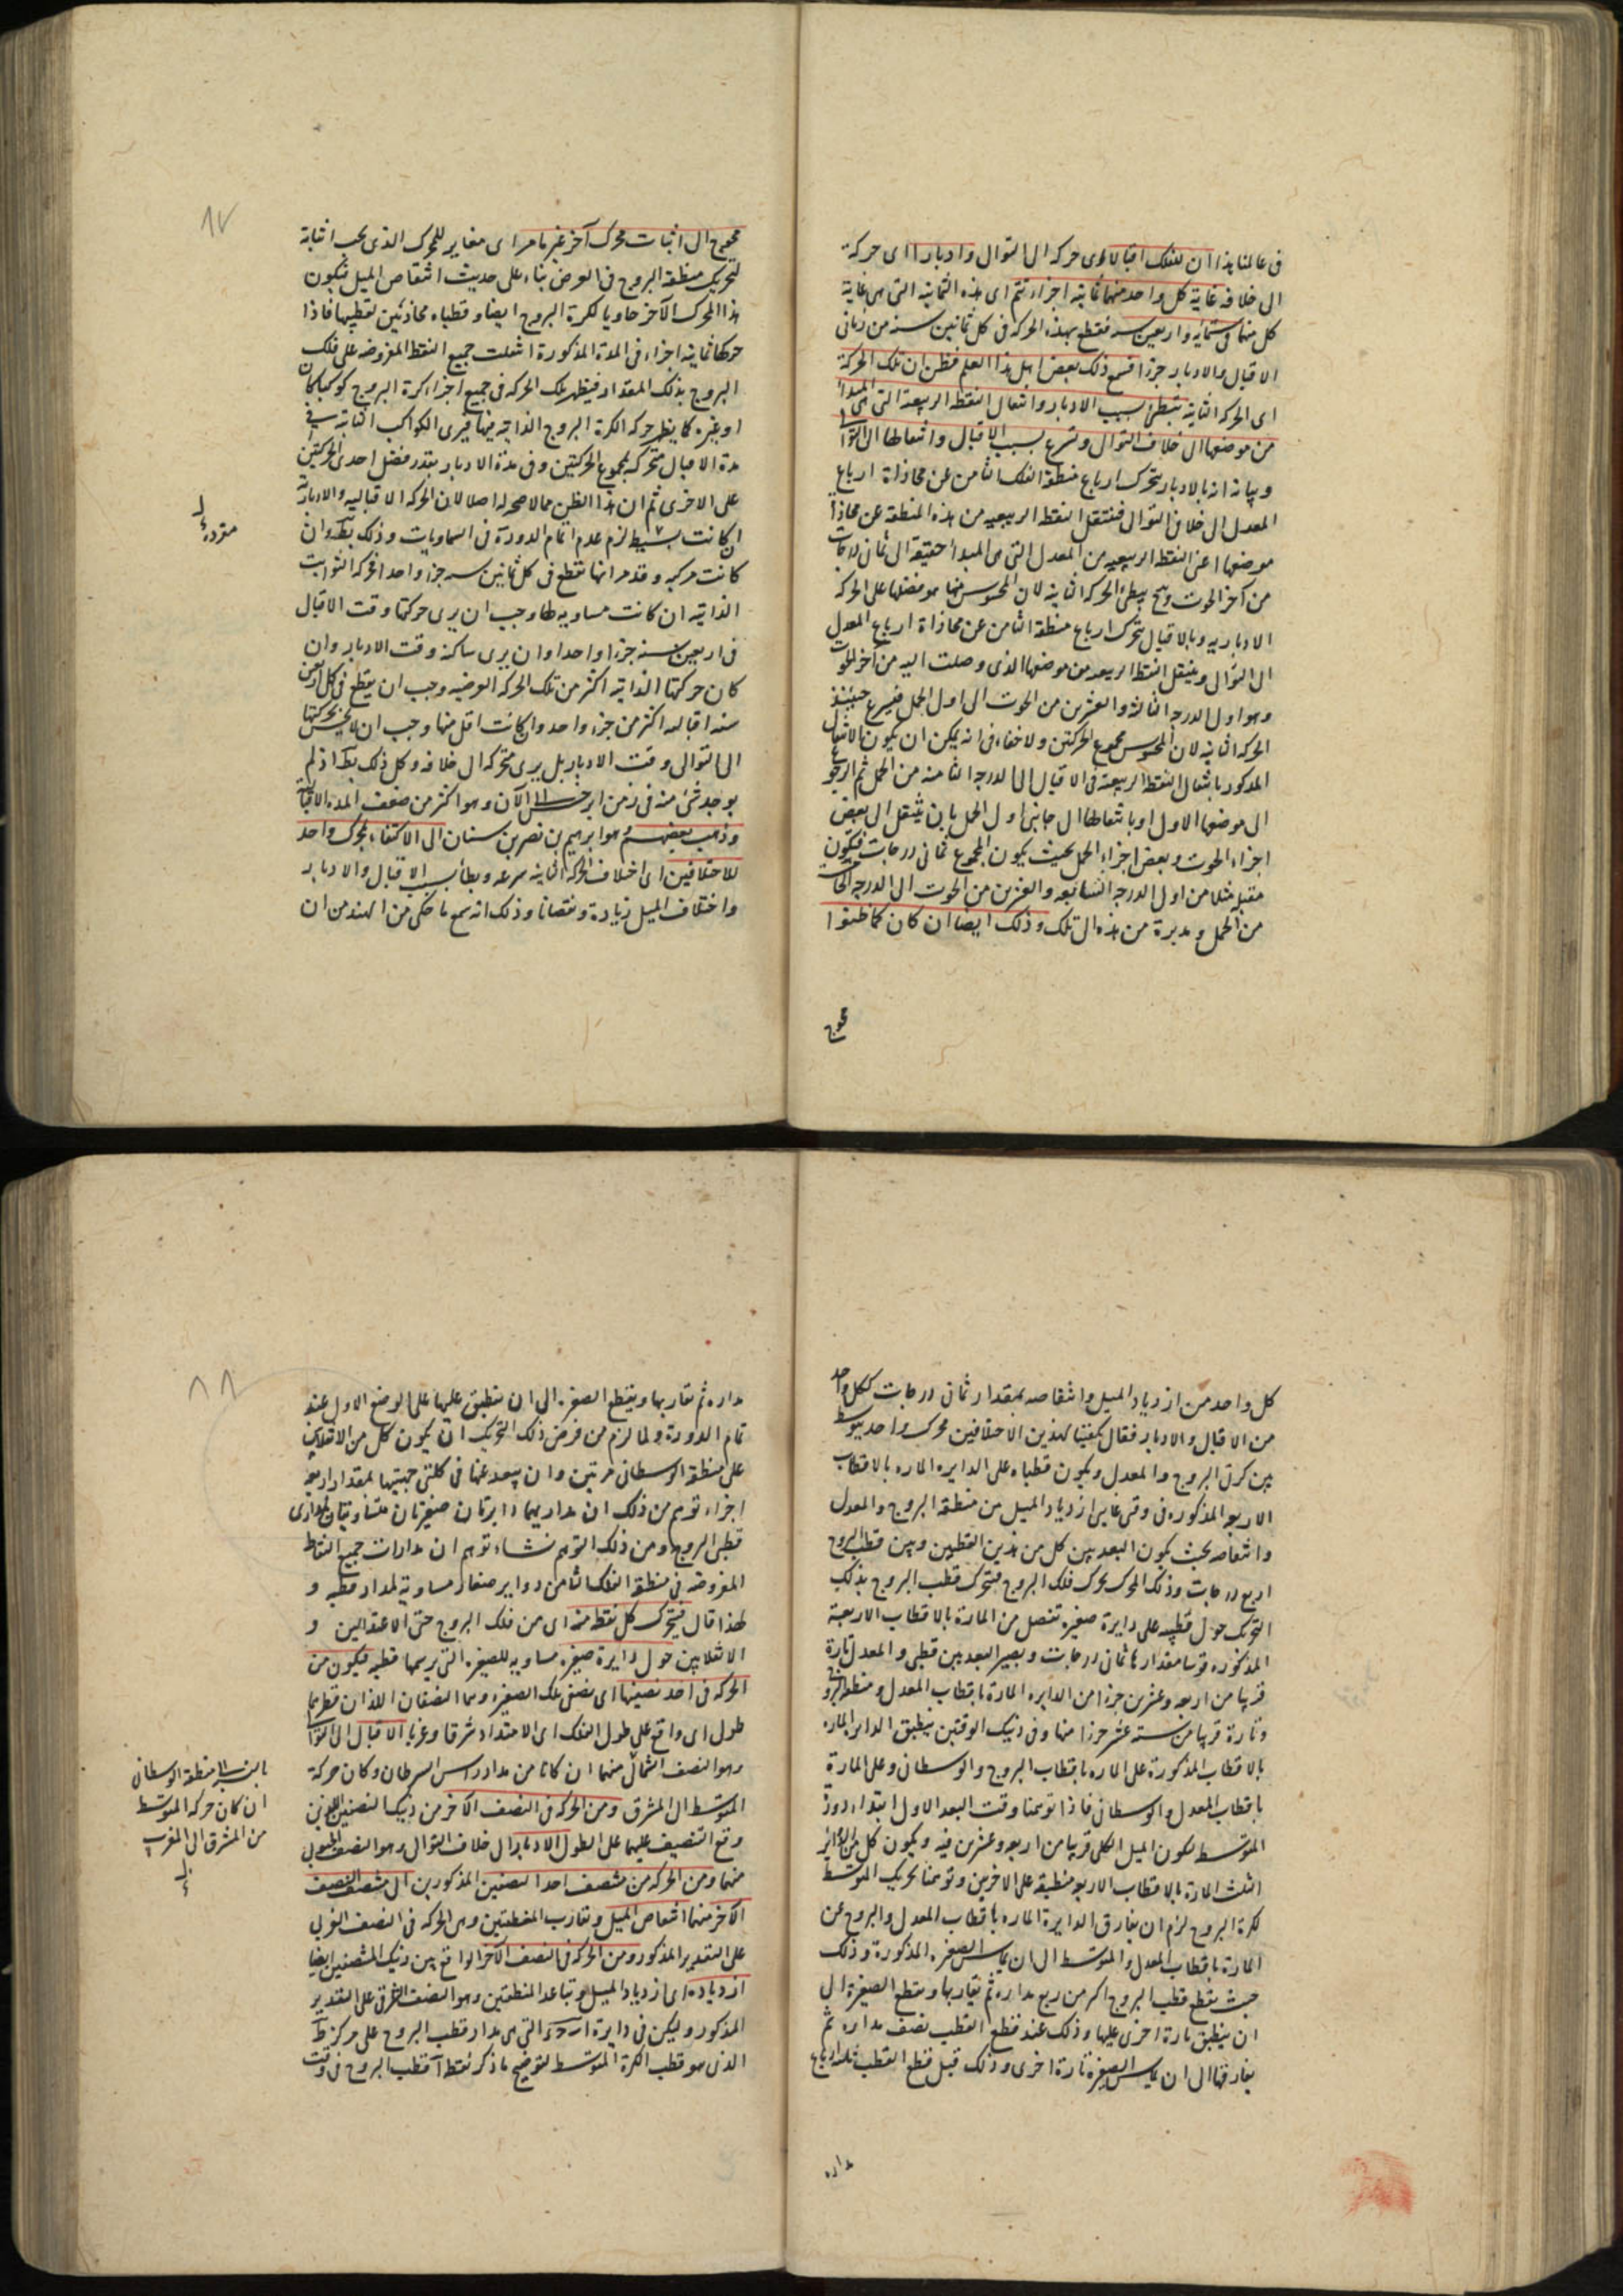 فى عالمنا هذا ان للفلك اقبالا اى حركة الى التوالى وادبارا اى حركة
الى خلافه غاية كل واحد منهما ثمانية اجزاء تتم اى هذه الثمانية التى هى غاية
كل منهما فى ستمائة واربعين سنة فتقطع بهذه الحركة فى كل ثمانين سنة من زمانى
الاقبال والادبار جزءا فسمع ذلك بعض اهل هذا العلم فظن ان تلك الحركة
اى الحركة الثانية تبطئ بسبب الادبار وانتقال النقطة الربيعية التى هى المبدأ
من موضعها الى خلاف التوالى وتسرع بسبب الاقبال وانتقالها الى التوالى
وبيانه انه بالادبار يتحرك ارباع منطقة الفلك الثامن عن محاذاة ارباع
المعدل الى خلاف التوالى فتنتقل النقطة الربيعية من هذه المنطقة عن محاذاة
موضعها اعنى النقطة الربيعية من المعدل التى هى المبدأ حقيقة الى ثمان درجات
من آخر الحوت وح يبطئ الحركة الثانية لان المحسوس منها هو فضلها على الحركة
الادبارية وبالاقبال يتحرك ارباع منطقة الثامن عن محاذاة ارباع المعدل
الى التوالى وينتقل النقطة الربيعية من موضعها الذى وصلت اليه من آخر الحوت
وهو اول الدرجة الثالثة والعشرين من الحوت الى اول الحمل فيسرع حينئذ
الحركة الثانية لان المحسوس مجموع الحركتين ولا خفاء فى انه يمكن ان يكون الانتقال
المذكور بانتقال النقطة الربيعية فى الاقبال الى الدرجة الثامنة من الحمل ثم الرجوع
الى موضعها الاول او بانتقالها الى جانبى اول الحمل بان تنتقل الى بعض
اجزاء الحوت وبعض اجزاء الحمل بحيث يكون المجموع ثمانى درجات فتكون
مقبلة مثلا من اول الدرجة السابعة والعشرين من الحوت الى الدرجة
من الحمل ومدبرة من هذه الى تلك وذلك ايضا ان كان كما ظنوا
محوج
محوج الى اثبات محرك آخر غير ما مر اى مغاير للمحرك الذى يجب اثباته
لتحريك منطقة البروج فى العرض بناء على حديث انتقاص الميل فيكون
هذا المحرك الآخر حاويا لكرة البروج ايضا وقطباه محاذيين لقطبيها فاذا
حركها ثمانية اجزاء فى المدة المذكورة انتقلت جميع النقط المفروضة على فلك
البروج بذلك المقدار فيظهر تلك الحركة فى جميع اجزاء كرة البروج كوكبا كان
او غيره كما يظهر حركة الكرة البروج الذاتية فيها فيرى الكواكب الثابتة فى
مدة الاقبال متحركة بمجموع الحركتين وفى مدة الادبار بقدر فضل احدى الحركتين
على الاخرى ثم ان هذا الظن مما لا صحة له اصلا لان الحركة الاقبالية والادبارية
ان كانت بسيطة لزم عدم اتمام الدورة فى السماويات وذلك بط وان
كانت مركبة وقد مر انها تقطع فى كل ثمانين سنة جزءا واحدا فحركة الثوابت
الذاتية ان كانت مساوية لها وجب ان يرى حركتها وقت الاقبال
فى اربعين سنة جزءا واحدا وان يرى ساكنة وقت الادبار وان
كان حركتها الذاتية اكثر من تلك الحركة العرضية وجب ان يقطع فى كل اربعين
سنة اقبالية اكثر من جزء واحد وان كانت اقل منها وجب ان لا يحس بحركتها
الى التوالى وقت الادبار بل يرى متحركة الى خلافه وكل ذلك بط اذ لم
يوجد شئ منه فى زمن ابرخس الى الآن وهو اكثر من ضعف المدة الاقبالية
وذهب بعضهم وهو ابراهيم بن نصر بن سنان الى الاكتفاء بمحرك واحد
للاختلافين اى اختلاف الحركة الثانية سرعة وبطأ بسبب الاقبال والادبار
واختلاف الميل زيادة ونقصانا وذلك انه سمع ما حكى من الهند من ان
كل واحد من ازدياد الميل وانتقاصه بمقدار ثمانى درجات ككل واحد
من الاقبال والادبار فقال يكفينا لهذين الاختلافين محرك واحد يتوسط
بين كرتى البروج والمعدل ويكون قطباه على الدايرة المارة بالاقطاب
الاربعة المذكورة فى وقتى غايتى ازدياد الميل من منطقة البروج والمعدل
وانتقاصه بحيث يكون البعد بين كل من هذين القطبين وبين قطب البروج
اربع درجات وذلك المحرك يحرك فلك البروج فيتحرك قطب البروج بذلك
التحريك حول قطبيه على دايرة صغيرة تفصل من المارة بالاقطاب الاربعة
المذكورة قوسا مقدارها ثمانى درجات ويصير البعد بين قطبى والمعدل تارة
قريبا من اربعة وعشرين جزءا من الدايرة المارة باقطاب المعدل ومنطقة البروج
وتارة قريبا من ستة عشر جزءا منها وفى ذينك الوقتين ينطبق الدايرة المارة
بالاقطاب المذكورة على المارة باقطاب البروج والوسطانى وعلى المارة
باقطاب المعدل والوسطانى فاذا توهمنا وقت البعد الاول ابتداء دورة
المتوسط لكون الميل الكلى قريبا من اربعة وعشرين فيه ويكون كل من الدوائر
الثلث المارة بالاقطاب الاربعة منطبقة على الاخريين وتوهمنا تحريك المتوسط
لكرة البروج لزم ان يفارق الدايرة المارة باقطاب المعدل والبروج عن
المارة باقطاب المعدل والمتوسط الى ان يماس الصغيرة المذكورة وذلك
حيث يقطع قطب البروج اكثر من ربع مداره ثم يقاربها ويقطع الصغيرة الى
ان ينطبق تارة اخرى عليها وذلك عند قطع القطب نصف مداره ثم
يفارقها الى ان يماس الصغيرة تارة اخرى وذلك قبل قطع القطب ثلثة ارباع
مداره
مداره ثم يقاربها ويقطع الصغيرة الى ان ينطبق عليها على الوضع الاول عند
تمام الدورة ولما لزم من فرض ذلك التحريك ان يكون كل من الانقلابين
على منطقة الوسطانى مرتين وان يبعد عنها فى كلتى جهتيها بمقدار اربعة
اجزاء توهم من ذلك ان مداريهما دايرتان صغيرتان متساويتان لمدارى
قطبى البروج ومن ذلك التوهم نشاء توهم ان مدارات جميع النقاط
المفروضة فى منطقة الفلك الثامن دواير صغار مساوية لمدار قطبه و
لهذا قال فيتحرك كل نقطة منه اى من فلك البروج حتى الاعتدالين و
الانقلابين حول دايرة صغيرة مساوية للصغيرة التى يرسمها قطبه فيكون من
الحركة فى احد نصفيها اى نصفى تلك الصغيرة وهما النصفان اللذان قطرهما
طول اى واقع على طول الفلك اى الامتداد شرقا وغربا الاقبال الى التوالى
وهو النصف الشمالى منهما ان كانا من مدار راس السرطان وكان حركة
المتوسط الى المشرق ومن الحركة فى النصف الآخر من ذينك النصفين اللذين
وقع التنصيف عليهما على الطول الادبار الى خلاف التوالى وهو النصف الجنوبى
منهما ومن الحركة من منتصف احد النصفين المذكورين الى منتصف النصف
الآخر منهما انتقاص الميل وتقارب المنطقتين وهى الحركة فى النصف الغربى
على التقدير المذكور ومن الحركة فى النصف الآخر الواقع بين ذينك المنتصفين ايضا
ازدياده اى ازدياد الميل وتباعد المنطقتين وهو النصف الشرقى على التقدير
المذكور وليكن فى دايرة التى هى مدار قطب البروج على مركز ط
الذى هو قطب الكرة المتوسط لتوضيح ما ذكر نقطة آ قطب البروج فى وقت
منطقة الوسطانى
ان كان حركة المتوسط
من المشرق الى المغرب